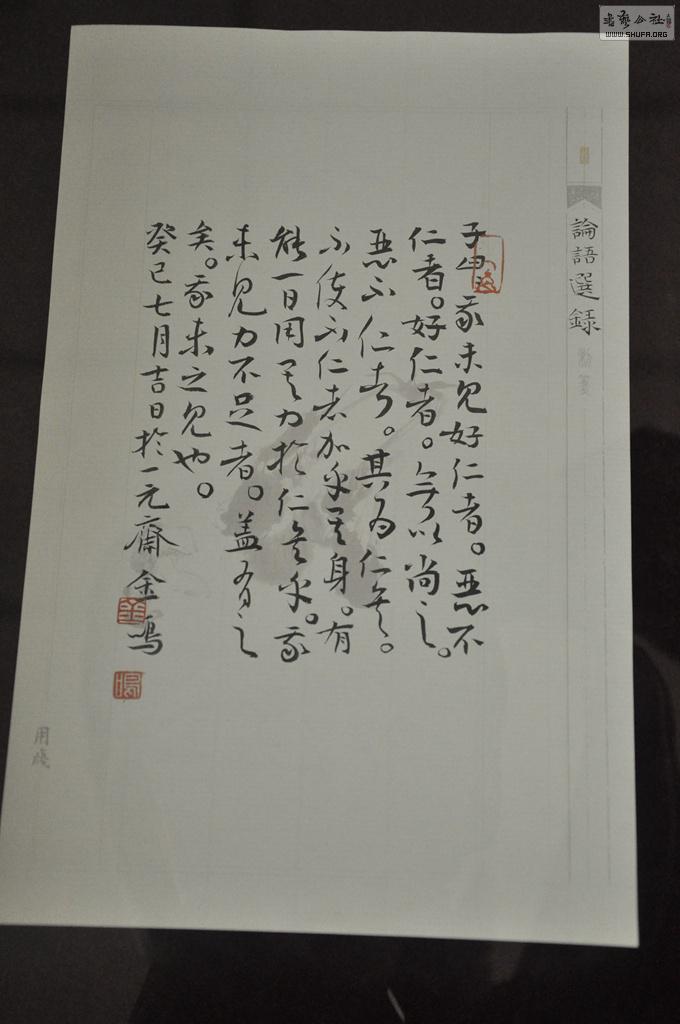 論語選録
子曰我未见好仁者。惡不
仁者。好仁者。無以尚之。
惡不仁者。其为仁矣。
不使不仁者加乎其身。有
能一日用其力於仁矣乎。我
未见力不足者。盖有之
矣。我未之见也。
癸巳七月吉日於一元齋金鳴
金
鳴
用箋
書藝公社
WWW.SHUFA.ORG